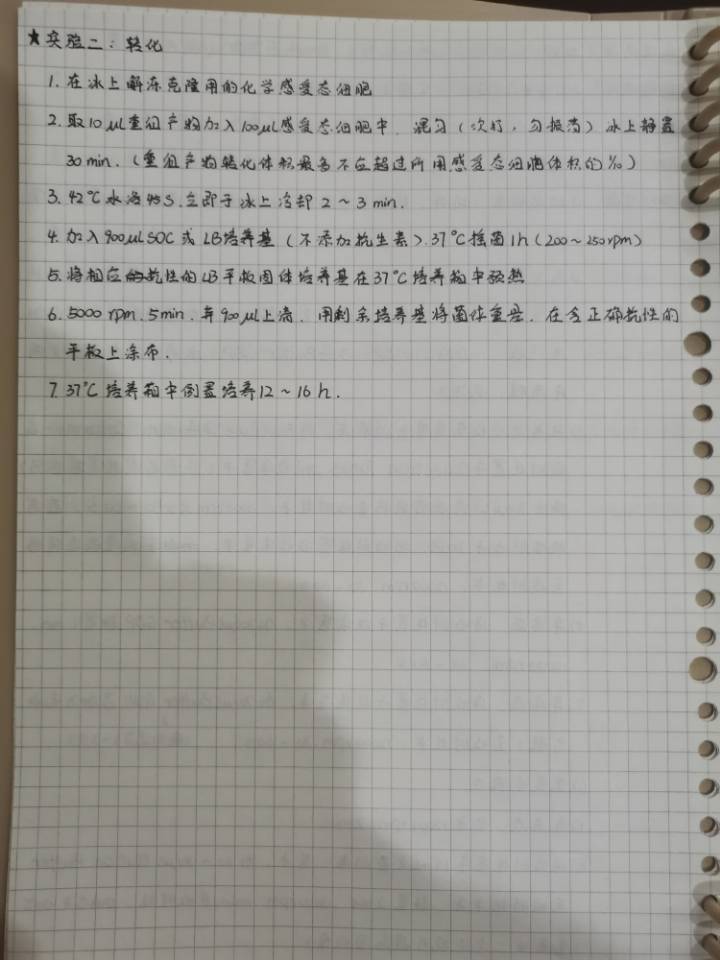 ★实验二：转化
1.在冰上解冻克隆用的化学感受态细胞
2.取10μL重组产物加入100μL感受态细胞中.混匀(吹打,勿振荡)冰上静置
30min.(重组产物转化体积最多不应超过所用感受态细胞体积的1/10)
3.42℃水浴45S.立即于冰上冷却2～3min.
4.加入900μLSOC或LB培养基(不添加抗生素).37℃摇菌1h(200～250rpm)
5.将相应抗性的LB平板固体培养基在37℃培养箱中预热
6.5000rpm.5min.弃900μL上清.用剩余培养基将菌体重悬.在含正确抗性的
平板上涂布.
7.37℃培养箱中倒置培养12～16h.